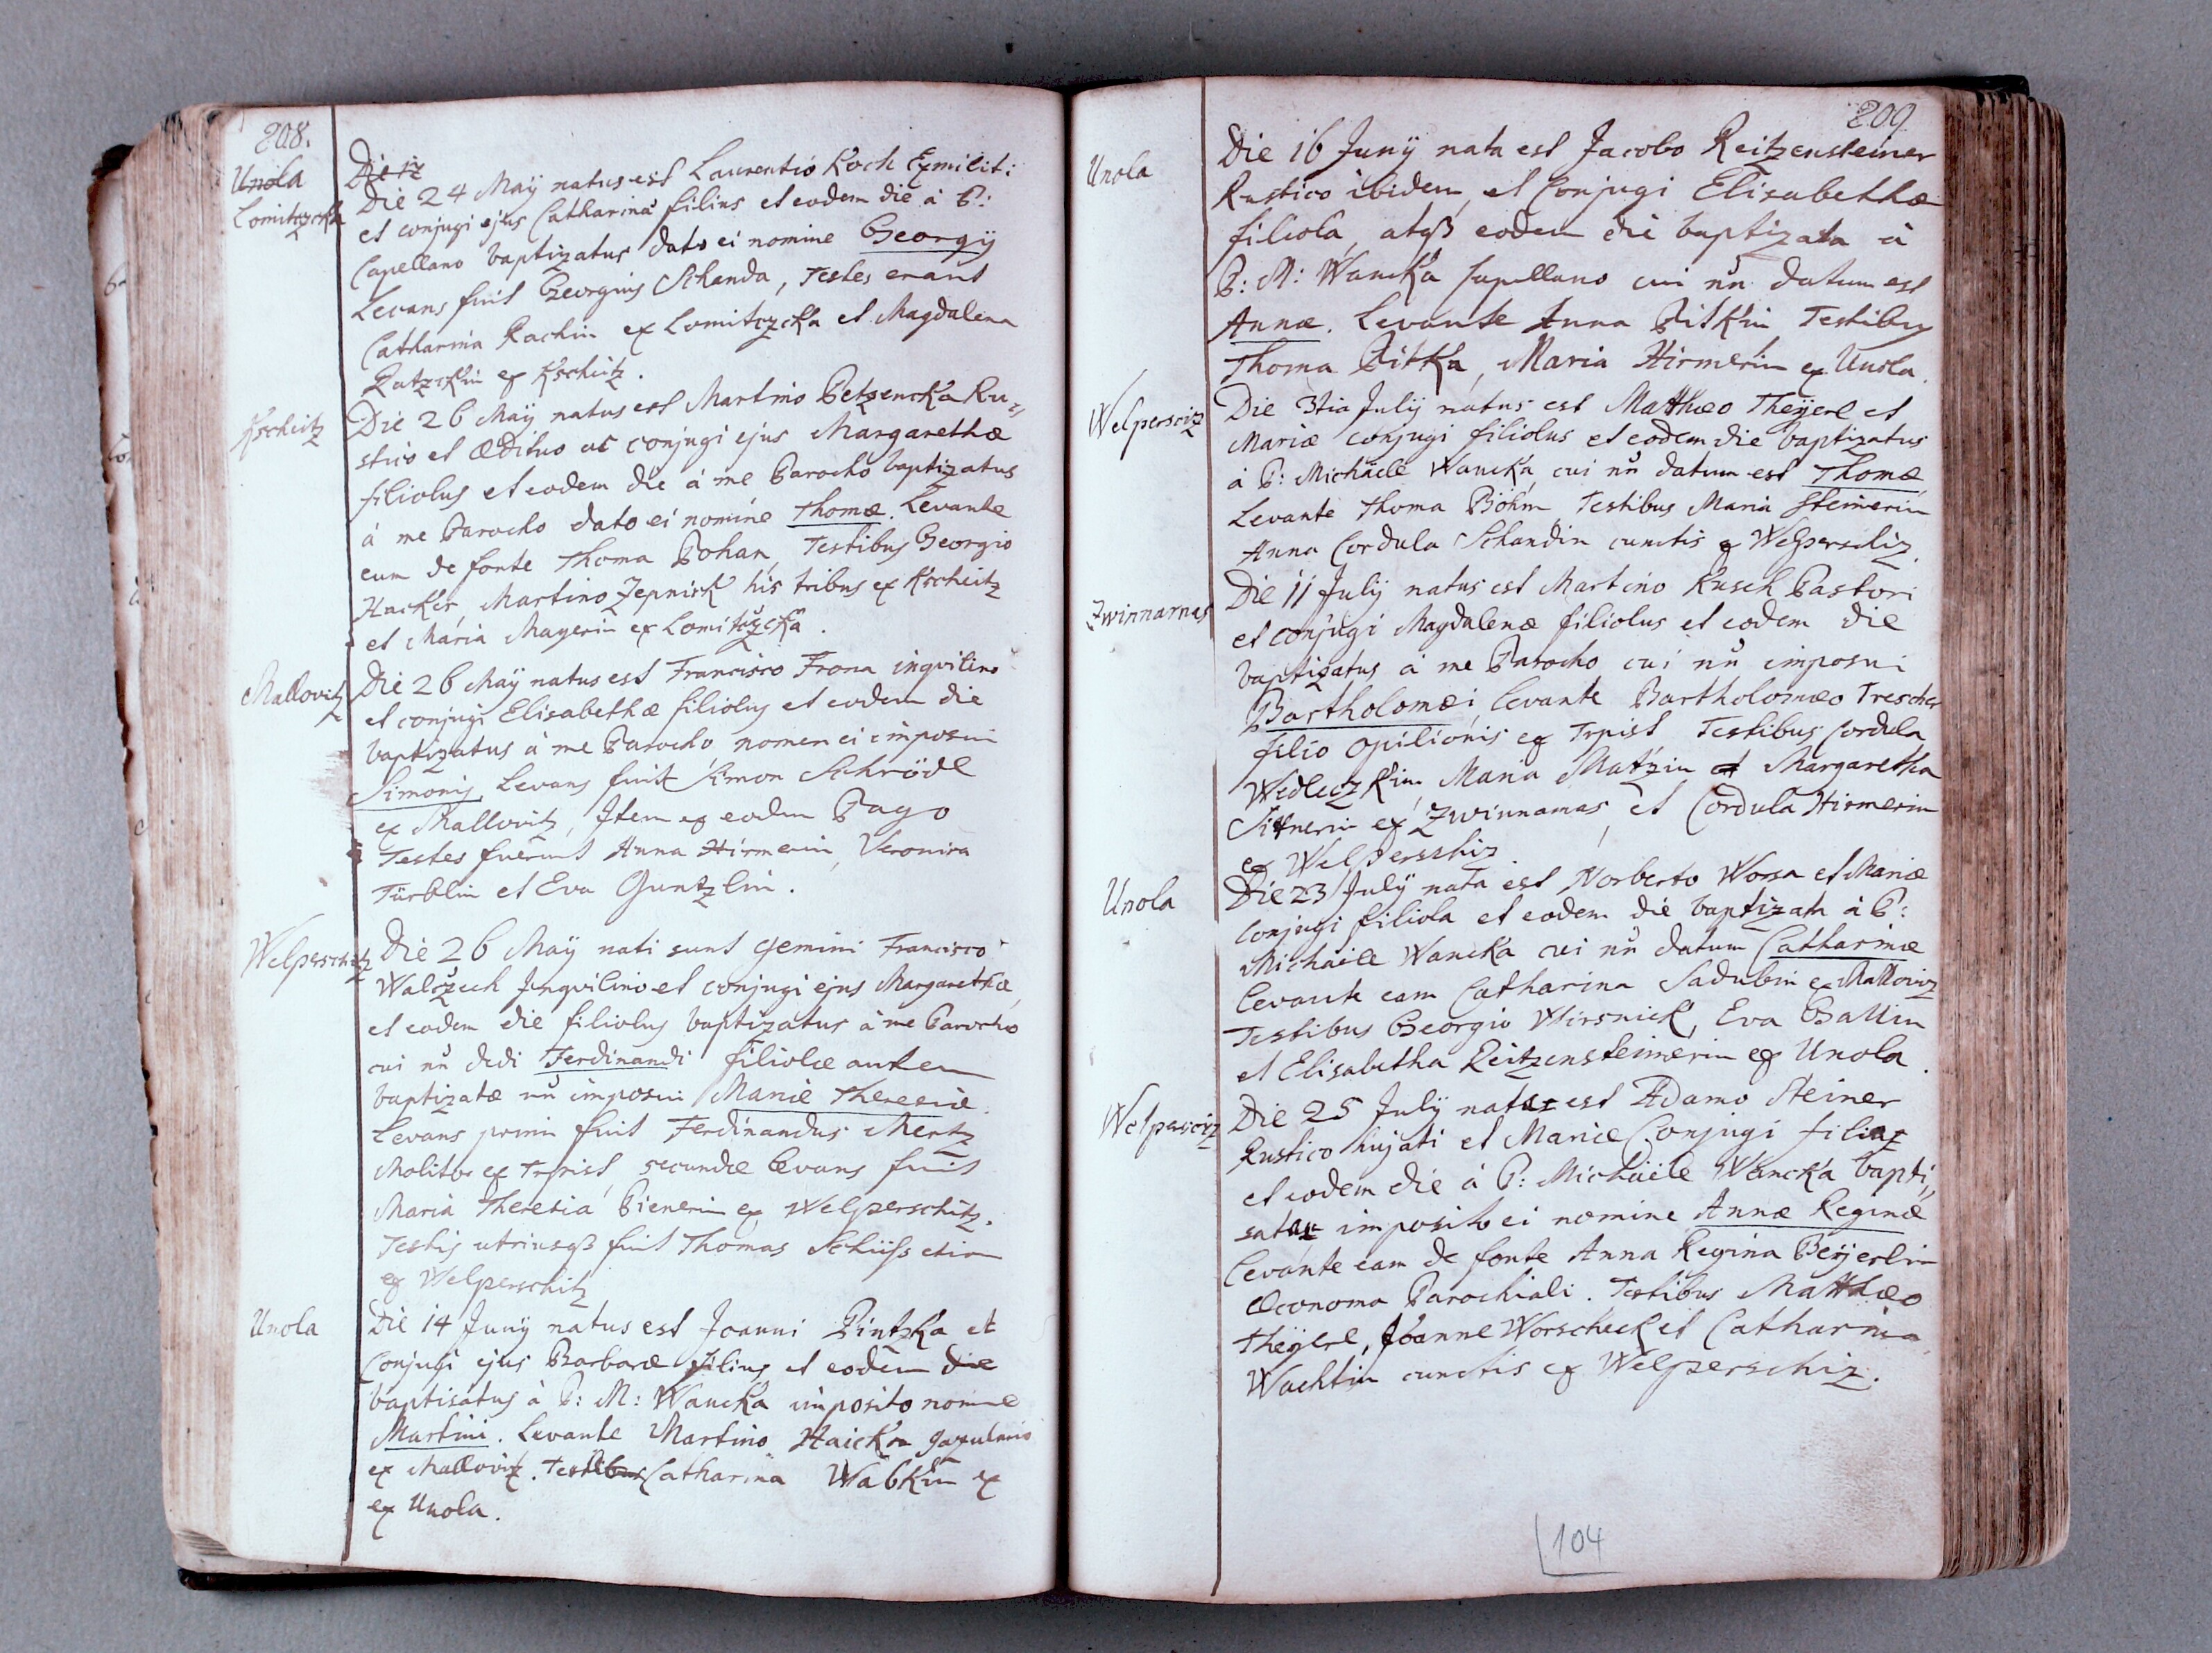 208.
Unola
Lomitczcka
Die 12
Die 24 Maÿ natus est Laurentio Koch Exmiliti
et conjugi ejus Catharinæ filius et eodem die à P:
Capellano baptizatus dato ei nomine Georgÿ
Levans fuit Georgius Schanda, Testes erant
Catharina Rachin ex Lomitczcka et Magdalena
Ratzckin ex Kscheitz.
Kscheitz
Die 26 Maÿ natus est Martino Petzencka Ru=
stico et Ædituo ac conjugi ejus Margarethæ
filiolus et eodem die à me Parocho baptizatus
à me Parocho dato ei nomine Thomæ. Levante
eum de fonte Thoma Pohan, Testibus Georgio
Hacker, Martino Zepnick his tribus ex Kscheitz
et Maria Mayerin ex Lomitczcka.
Mallovitz
Die 26 Maÿ natus est Francisco Frona inqvilino
et conjugi Elisabethæ filiolus et eodem die
baptizatus à me Parocho nomen ei imposui
Simonis, Levans fuit Simon Schrödl
ex Mallovitz, Item ex eodem Pago
Testes fuerunt Anna Hirmerin, Veronica
Türblin et Eva Guntzlin.
Welperschitz
Die 26 Maÿ nati sunt gemini Francisco
Walczech Inqvilino et conjugi ejus Margarethæ,
et eodem die filiolus baptizatus à me Parocho
cui nn dedi Ferdinandi filiolæ autem
baptizatæ nn imposui Mariæ Theresiæ.
Levans primi fuit Ferdinandus Mertz
Molitor ex Trpist, secundæ levans fuit
Maria Theresia Pienerin ex Welperschitz.
Testis utriusqß fuit Thomas Schüss etiam
ex Welperschitz
Unola
Die 14 Junÿ natus est Joanni Pintzka et
Conjugi ejus Barbaræ filius et eodem die
baptisatus à P: M: Wancka imposito nomine
Martini. Levante Martino Haicka
ex Mallovitz. Testibus Catharina Wabkin ex
ex Unola.
209
Unola
Die 16 Junÿ nata est Jacobo Reitzensteiner
Rustico ibidem, et Conjugi Elisabethæ
filiola, atqß eodem die baptizata à
P: M: Wancka Capellano cui nn datum est
Annæ. Levante Anna Pitkin Testibus
Thoma Pitka, Maria Hirmerin ex Unola.
Welperscitz
Die 3tia Julÿ natus est Matthæo Theÿerl et
Mariæ conjugi filiolus et eodem die baptizatus
à P: Michäele Wancka, cui nn datum est Thomæ,
Levante Thoma Böhm Testibus Maria Steinerin
Anna Cordula Schandin cunctis ex Welperschiz.
Zwinnamas
Die 11 Julÿ natus est Martino Kusch Pastori
et conjugi Magdalenæ filiolus et eodem die
baptizatus à me Parocho cui nn imposui
Bartholomæi, levante Bartholomæo Trescher
filio opilionis ex Trpist Testibus Cordula
Wedleczkin, Maria Matzin et Margaretha
Sittnerin ex Zwinnamas, et Cordula Hirmerin
ex Welperschiz.
Unola
Die 23 Julÿ nata est Norberto Worsa et Mariæ
Conjugi filiola et eodem die baptizata à P:
Michäele Wancka cui nn datum Catharinæ
levante eam Catharina Sadubin ex Malloviz
Testibus Georgio Wirsnick, Eva Ballin
et Elisabetha Reitzensteinerin ex Unola.
Welperscitz
Die 25 Julÿ nata est Adamo Steiner
Rustico hujati et Mariæ Conjugi filia
et eodem die à P: Michäele Wancka bapti,,
sata imposito ei nomine Annæ Reginæ
levante eam de fonte Anna Regina Beÿerlin
œconoma Parochiali. Testibus Matthæo
Theÿerl, Joanne Worscheck et Catharina
Wachtin cunctis ex Welperschiz.
104